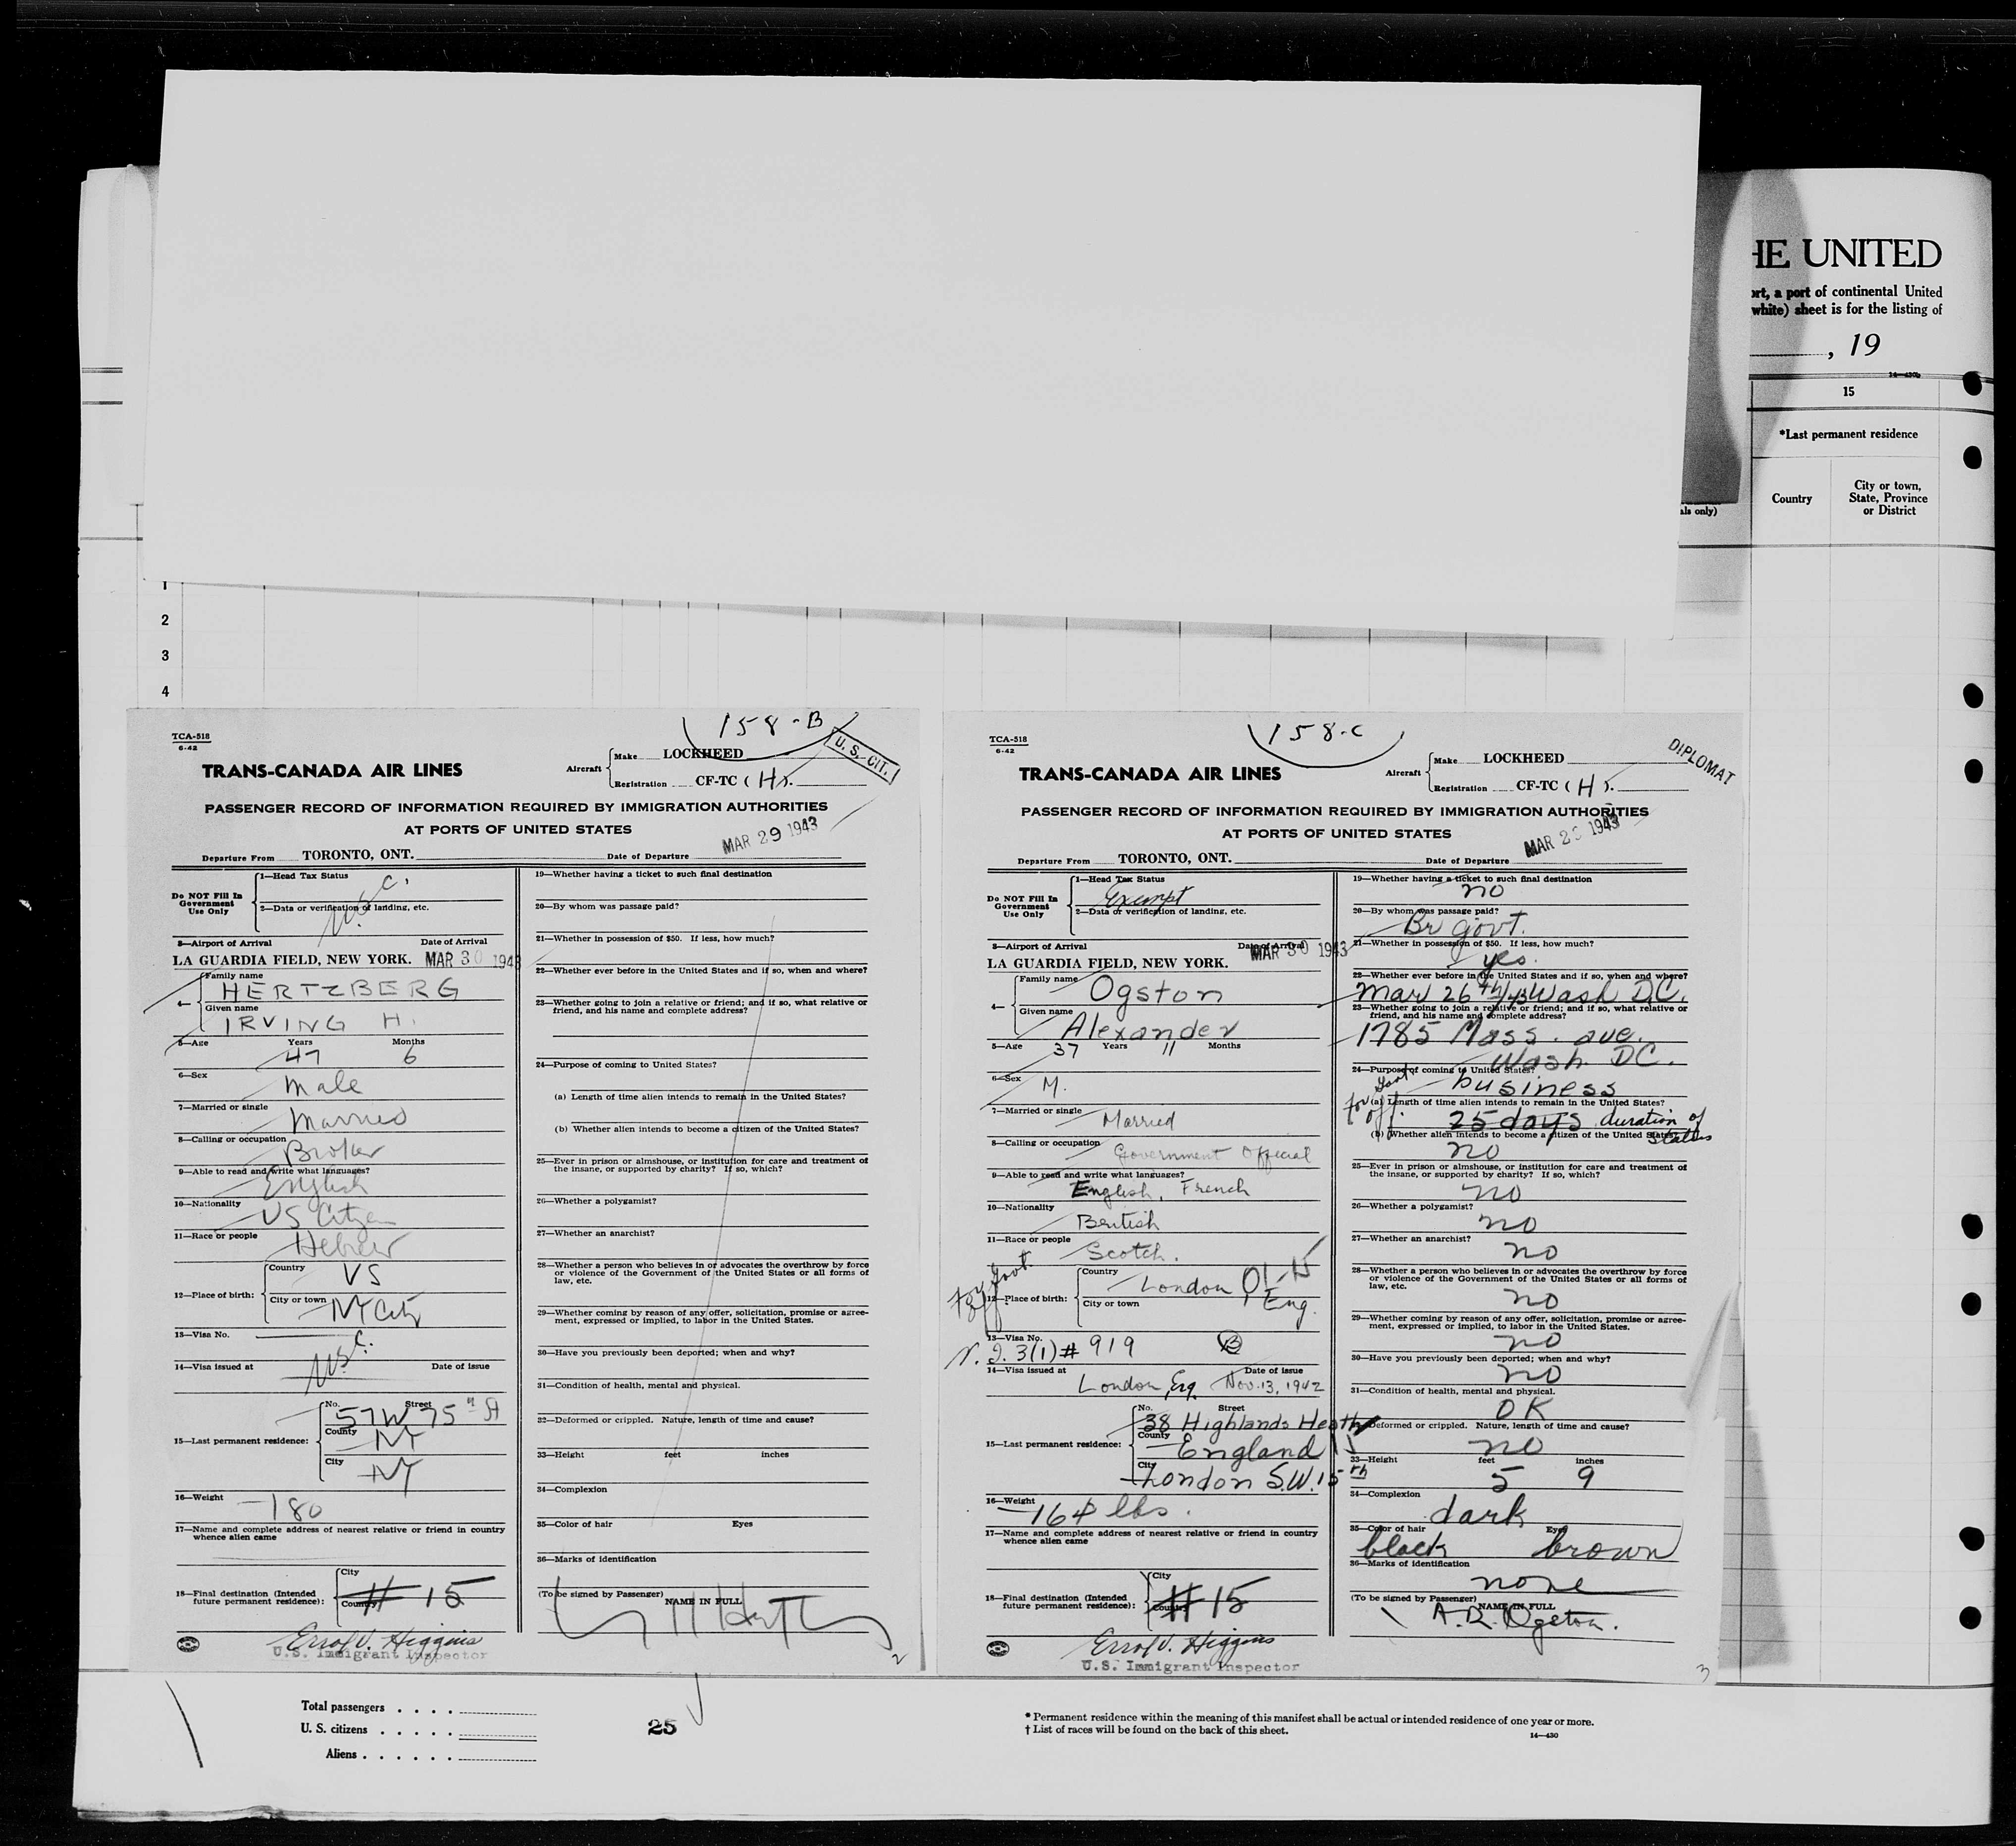 HE UNITED
ort, a port of continental United
white) sheet is for the listing of
, 19
14—430b
15
*Last permanent residence
Country
City or town,
State, Province
or District
als only)
1
2
3
4
158-B
TCA-518
6-42
U. S. CIT.
TRANS-CANADA AIR LINES
Aircraft
Make LOCKHEED
Registration CF-TC ( H ).
PASSENGER RECORD OF INFORMATION REQUIRED BY IMMIGRATION AUTHORITIES
AT PORTS OF UNITED STATES
MAR 29 1943
Departure From TORONTO, ONT. Date of Departure
Do NOT Fill In
Government
Use Only
1—Head Tax Status
2—Data or verification of landing, etc.
U.S.C.
3—Airport of Arrival Date of Arrival
LA GUARDIA FIELD, NEW YORK. MAR 30 1943
4—
Family name
HERTZBERG
Given name
IRVING H.
5—Age Years Months
47 6
6—Sex
Male
7—Married or single
Married
8—Calling or occupation
Broker
9—Able to read and write what languages?
English
10—Nationality
US Citizen
11—Race or people
Hebrew
12—Place of birth:
Country
US
City or town
NY City
13—Visa No.
USC.
14—Visa issued at Date of issue
15—Last permanent residence:
No. Street
57 W 75th St
County
NY
City
NY
16—Weight
180
17—Name and complete address of nearest relative or friend in country
whence alien came
18—Final destination (Intended
future permanent residence):
City
County
# 15
Errol V. Higgins
U.S. Immigrant Inspector
19—Whether having a ticket to such final destination
20—By whom was passage paid?
21—Whether in possession of $50. If less, how much?
22—Whether ever before in the United States and if so, when and where?
23—Whether going to join a relative or friend; and if so, what relative or
friend, and his name and complete address?
24—Purpose of coming to United States?
(a) Length of time alien intends to remain in the United States?
(b) Whether alien intends to become a citizen of the United States?
25—Ever in prison or almshouse, or institution for care and treatment of
the insane, or supported by charity? If so, which?
26—Whether a polygamist?
27—Whether an anarchist?
28—Whether a person who believes in or advocates the overthrow by force
or violence of the Government of the United States or all forms of
law, etc.
29—Whether coming by reason of any offer, solicitation, promise or agree-
ment, expressed or implied, to labor in the United States.
30—Have you previously been deported; when and why?
31—Condition of health, mental and physical.
32—Deformed or crippled. Nature, length of time and cause?
33—Height feet inches
34—Complexion
35—Color of hair Eyes
36—Marks of identification
(To be signed by Passenger)
NAME IN FULL
2
158-C
TCA-518
6-42
DIPLOMAT
TRANS-CANADA AIR LINES
Aircraft
Make LOCKHEED
Registration CF-TC ( H ).
PASSENGER RECORD OF INFORMATION REQUIRED BY IMMIGRATION AUTHORITIES
AT PORTS OF UNITED STATES
MAR 1943
Departure From TORONTO, ONT. Date of Departure
Do NOT Fill In
Government
Use Only
1—Head Tax Status
Exempt
2—Data or verification of landing, etc.
3—Airport of Arrival Date of Arrival
LA GUARDIA FIELD, NEW YORK. MAR 30 1943
4—
Family name
Ogston
Given name
Alexander
5—Age 37 Years 11 Months
6—Sex
M.
7—Married or single
Married
8—Calling or occupation
Government Official
9—Able to read and write what languages?
English, French
10—Nationality
British
11—Race or people
Scotch.
For Govt. Off.
12—Place of birth:
Country
London
City or town
Eng.
13—Visa No.
3(1) # 919
14—Visa issued at Date of issue
London, Eng. Nov. 13, 1942
15—Last permanent residence:
No. Street
38 Highlands Heath
County
England
City
London S.W. 15th
16—Weight
164 lbs.
17—Name and complete address of nearest relative or friend in country
whence alien came
18—Final destination (Intended
future permanent residence):
City
County
# 15
Errol V. Higgins
U.S. Immigrant Inspector
19—Whether having a ticket to such final destination
no
20—By whom was passage paid?
Br govt.
21—Whether in possession of $50. If less, how much?
yes.
22—Whether ever before in the United States and if so, when and where?
Mar 26th/43 Wash D.C.
23—Whether going to join a relative or friend; and if so, what relative or
friend, and his name and complete address?
1785 Mass. ave.
Wash. DC.
24—Purpose of coming to United States?
for govt off.
business
(a) Length of time alien intends to remain in the United States?
25 days duration of
status
(b) Whether alien intends to become a citizen of the United States?
no
25—Ever in prison or almshouse, or institution for care and treatment of
the insane, or supported by charity? If so, which?
no
26—Whether a polygamist?
no
27—Whether an anarchist?
no
28—Whether a person who believes in or advocates the overthrow by force
or violence of the Government of the United States or all forms of
law, etc.
no
29—Whether coming by reason of any offer, solicitation, promise or agree-
ment, expressed or implied, to labor in the United States.
no
30—Have you previously been deported; when and why?
no
31—Condition of health, mental and physical.
OK
Deformed or crippled. Nature, length of time and cause?
no
33—Height feet inches
5 9
34—Complexion
dark
35—Color of hair Eyes
black brown
36—Marks of identification
none
(To be signed by Passenger)
NAME IN FULL
A. R. Ogston.
3
Total passengers . . . .
U. S. citizens . . . . .
Aliens . . . . . .
25
* Permanent residence within the meaning of this manifest shall be actual or intended residence of one year or more.
† List of races will be found on the back of this sheet.
14—430